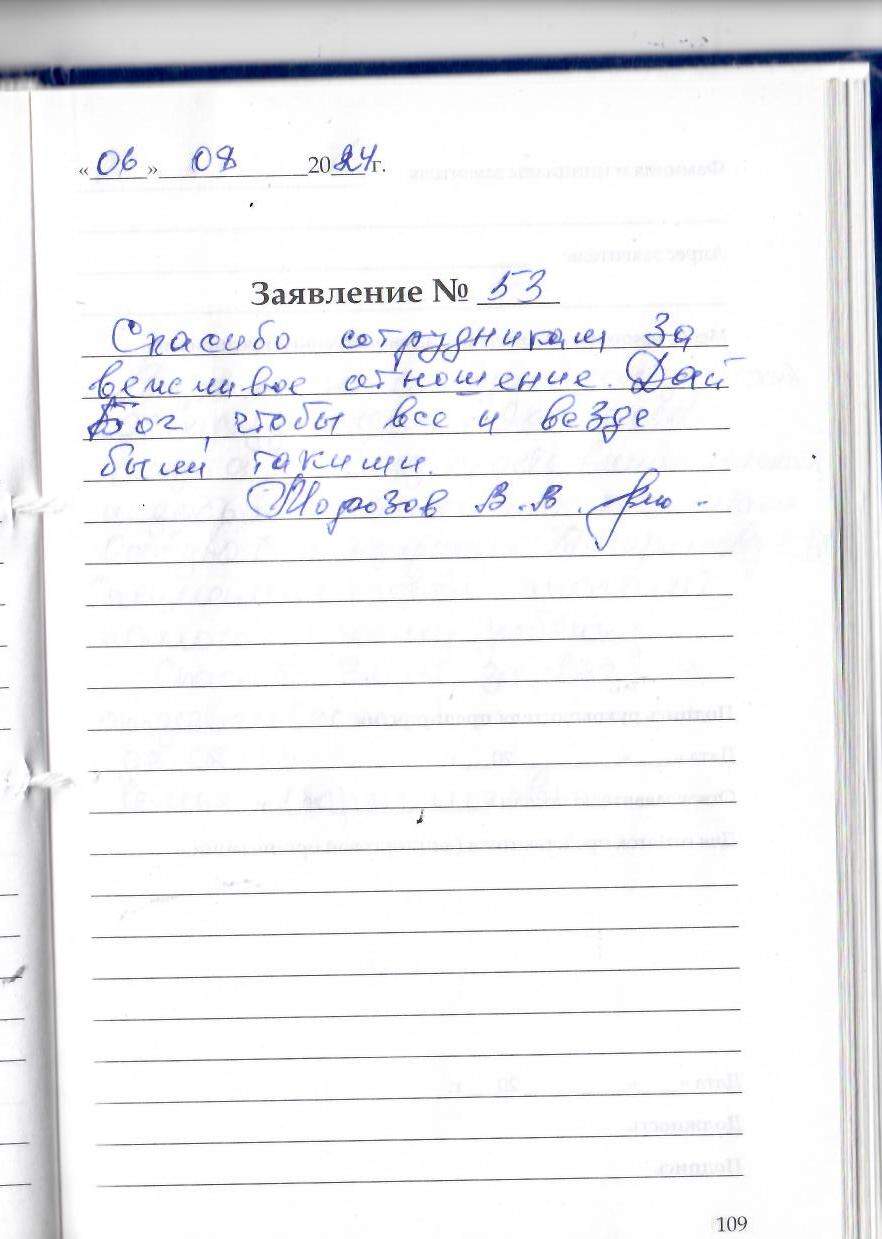 «06» 08 2024 г.
Заявление № 53
Спасибо сотрудникам за
вежливое отношение. Дай
Бог, чтобы все и везде
были такими.
Морозов В.В.
109